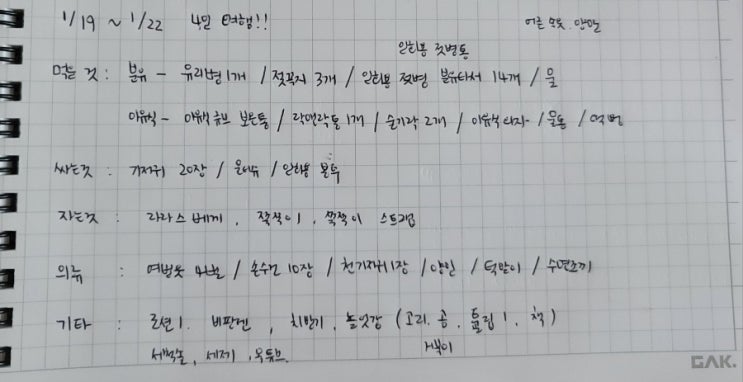 1/19 ~ 1/22 4일 여행!!
어른 옷, 양말
일회용 젖병통
먹는 것 : 분유 - 유리병 1개 / 젖꼭지 3개 / 일회용 젖병 분유타서 14개 / 물
이유식 - 이유식 큐브 보든통 / 락앤락통 1개 / 숟가락 2개 / 이유식 의자 / 물통 /
싸는것 : 기저귀 20장 / 물티슈 / 일회용 봉투
자는것 : 라라스베게, 쪽쪽이 1, 쪽쪽이 스트랩
의류 : 여벌옷 4벌 / 손수건 10장 / 천기저귀 1장 / 양말 / 턱받이 / 수면조끼
기타 : 로션 1. 비판텐, 치발기, 놀잇감 (코리. 공. 튤립 1, 책)
거북이
세척솔, 세제, 욕튜브.
GAK.